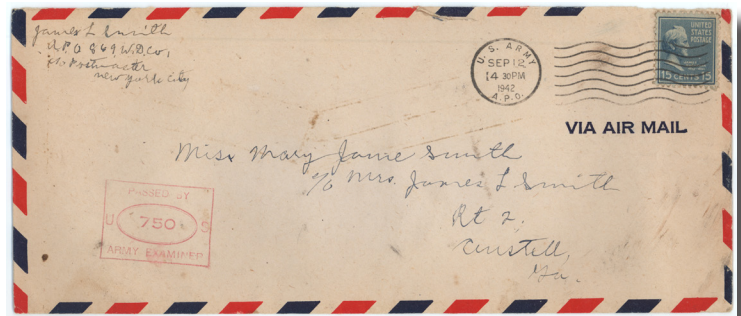 James L Smith
A.P.O 869 W.D.Co,
c/o Postmaster
new york City
U.S. ARMY
SEP 12
14 30PM
1942
A.P.O.
UNITED
STATES
POSTAGE
15 CENTS 15
VIA AIR MAIL
Miss Mary Jane Smith
c/o Mrs. James L Smith
Rt 2.
Austell,
Ga.
PASSED BY
U 750 S
ARMY EXAMINER